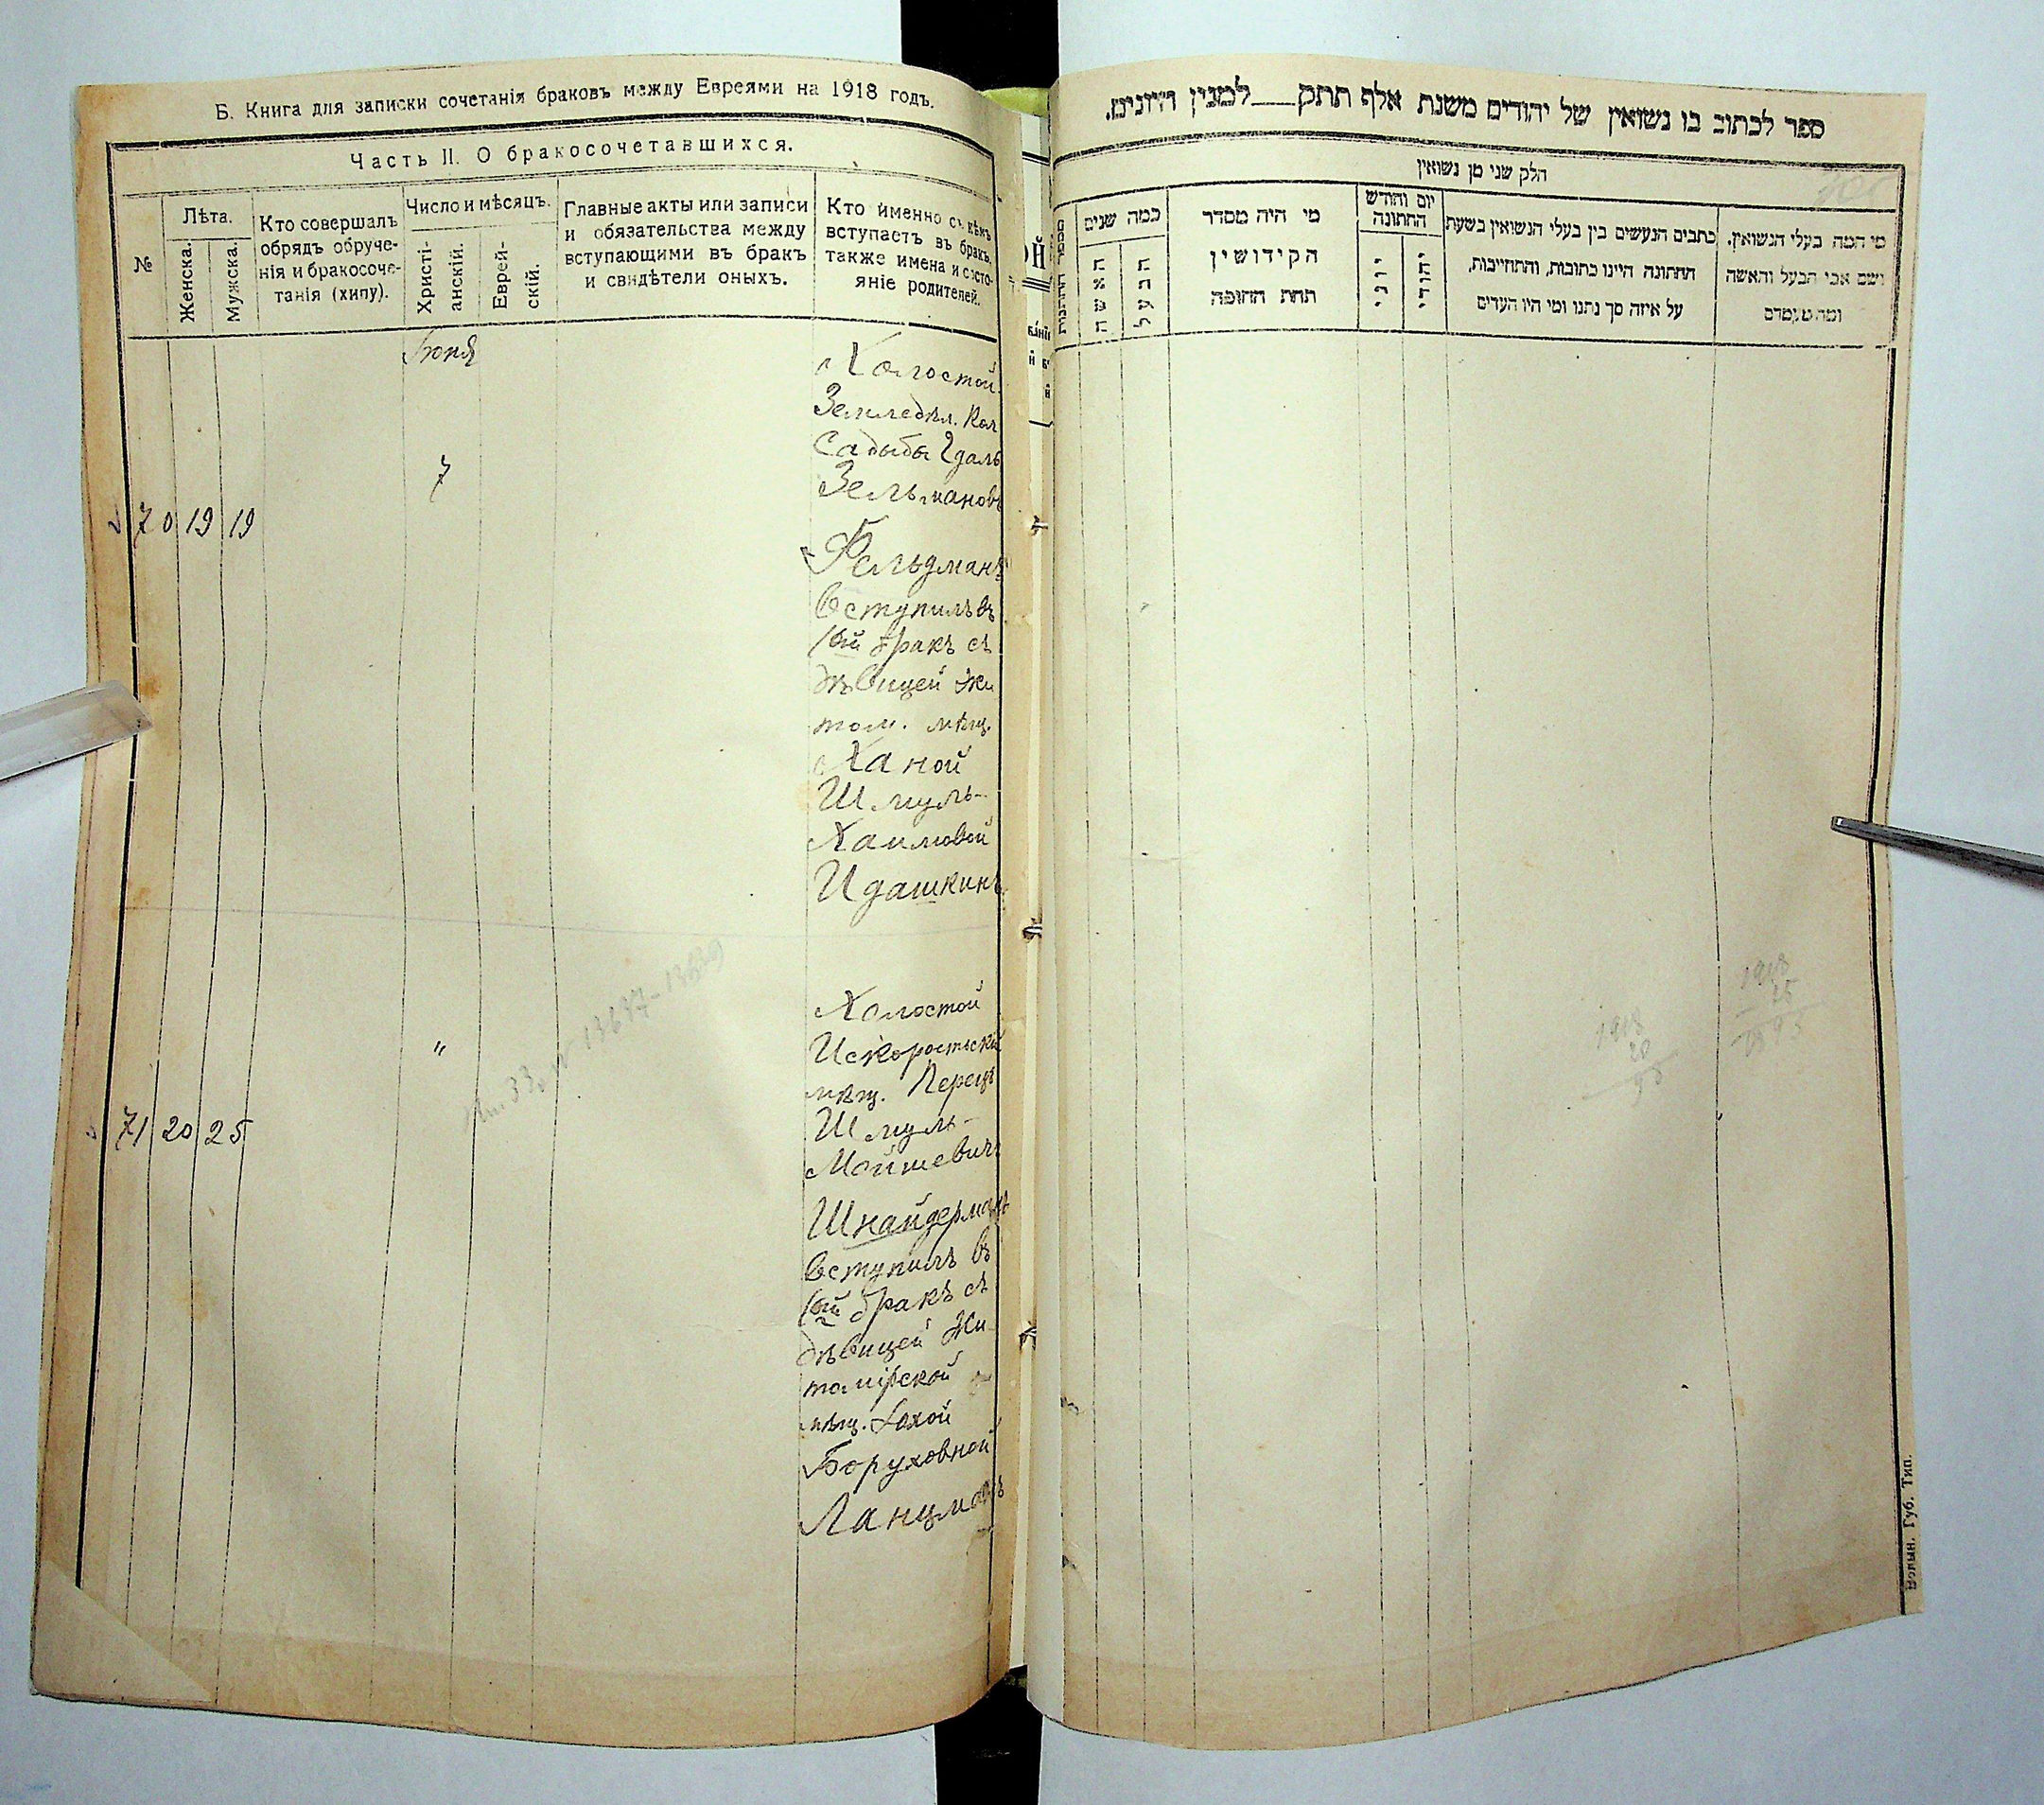 Б. Книга для записки сочетанія браковъ между Евреями на 1918 годъ.
Часть II. О бракосочетавшихся.
№
Лѣта.
Женска.
Мужска.
Кто совершалъ
обрядъ обруче-
нія и бракосоче-
танія (хипу).
Число и мѣсяцъ.
Христі-
анскій.
Еврей-
скій.
Главные акты или записи
и обязательства между
вступающими въ бракъ
и свидѣтели оныхъ.
Кто именно съ кѣмъ
вступаетъ въ бракъ,
также имена и состо-
яніе родителей.
Іюня
70 19 19
7
Холостой
Земледѣл. Кол
Садыбы Гдаль
Зельмановъ
Фельдманъ
вступилъ въ
1ой бракъ съ
дѣвицей Жи
том. мѣщ.
Ханой
Шмуль-
Хаимовой
Идашкинъ
71 20 25
"
Холостой
Искоростьскій
мѣщ. Перецъ
Шмуль-
Мойшевичъ
Шнайдерманъ
вступилъ въ
1ой бракъ съ
дѣвицей Жи-
томірской
мѣщ.
Боруховной
Ланцманъ
13637-13639
ספר לכתוב בו נשואין של יהודים משנת אלף תתק___למנין היונים.
חלק שני מן נשואין
מספר החתונות
כמה שנים
האשה
הבעל
מי היה מסדר
הקידושין
תחת החופה
יום וחודש
החתונה
יוני
יהודי
כתבים הנעשים בין בעלי הנשואין בשעת
החתונה היינו כתובות, והתחייבות,
על איזה סך נתנו ומי היו העדים
מי המה בעלי הנשואין,
ושם אבי הבעל והאשה
ומה מעמדם
1918
20
98
1918
25
1893
Волын. Губ. Тип.